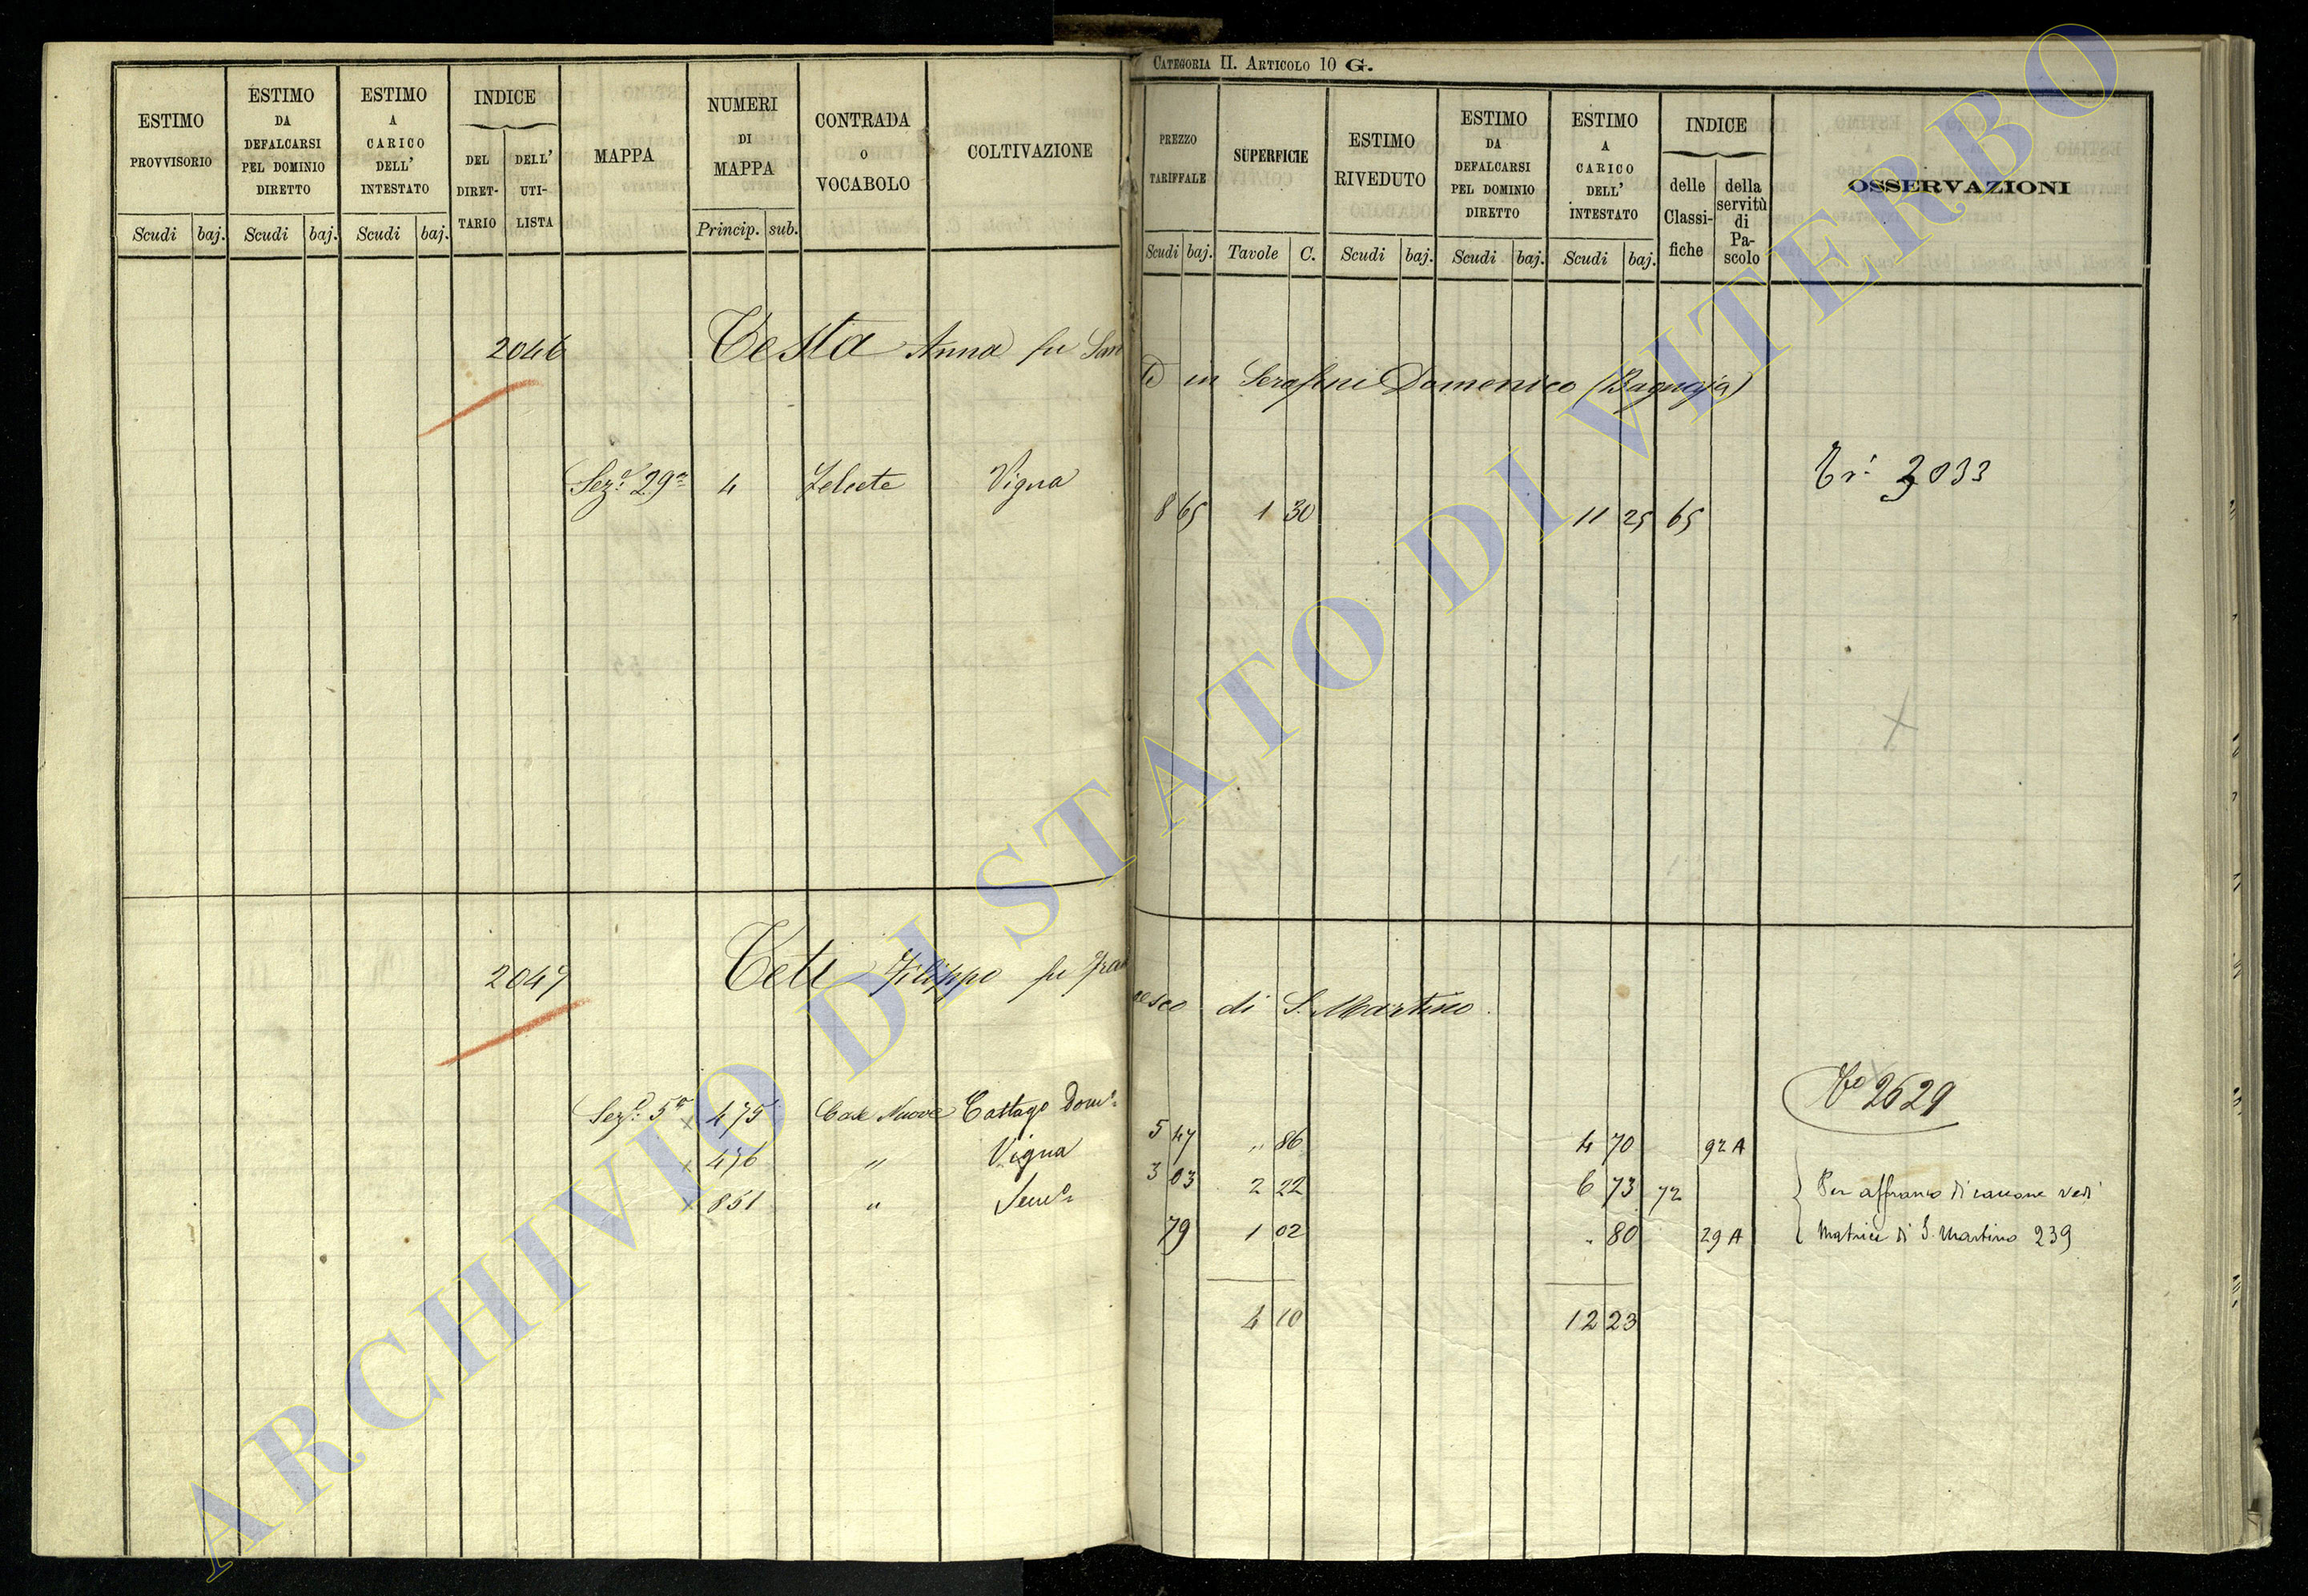 CATEGORIA II. ARTICOLO 10 G.
ESTIMO PROVVISORIO
Scudi baj.
ESTIMO DA DEFALCARSI PEL DOMINIO DIRETTO
Scudi baj.
ESTIMO A CARICO DELL' INTESTATO
Scudi baj.
INDICE
DEL DIRET-TARIO
DELL' UTI-LISTA
MAPPA
NUMERI DI MAPPA
Princip. sub.
CONTRADA O VOCABOLO
COLTIVAZIONE
PREZZO TARIFFALE
Scudi baj.
SUPERFICIE
Tavole C.
ESTIMO RIVEDUTO
Scudi baj.
ESTIMO DA DEFALCARSI PEL DOMINIO DIRETTO
Scudi baj.
ESTIMO A CARICO DELL' INTESTATO
Scudi baj.
INDICE
delle Classi-fiche
della servitù di Pa-scolo
OSSERVAZIONI
2046 Testa Anna fu San
in Serafini Domenico (Bagnaja)
Sez.e 29a 4 Vigna 8 65 1 30 11 25 65
3033
2047 Teti Filippo fu Fran
cesco di S. Martino
Vo 2629
Sez.e 5a x 475 Case Nuove Castag.o Dom.e 5 47 " 86 4 70 92 A
x 476 " Vigna 3 03 2 22 6 73 72
x 851 " Sem.o 79 1 02 " 80 29 A
Per affranco di canone vedi
Matrice di S. Martino 239
4 10 12 23
ARCHIVIO DI STATO DI VITERBO